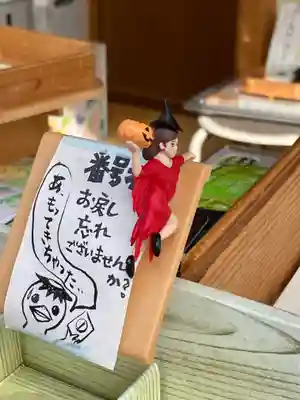 番号
お戻し
忘れ
ございません
か?
あ、もってきちゃった…